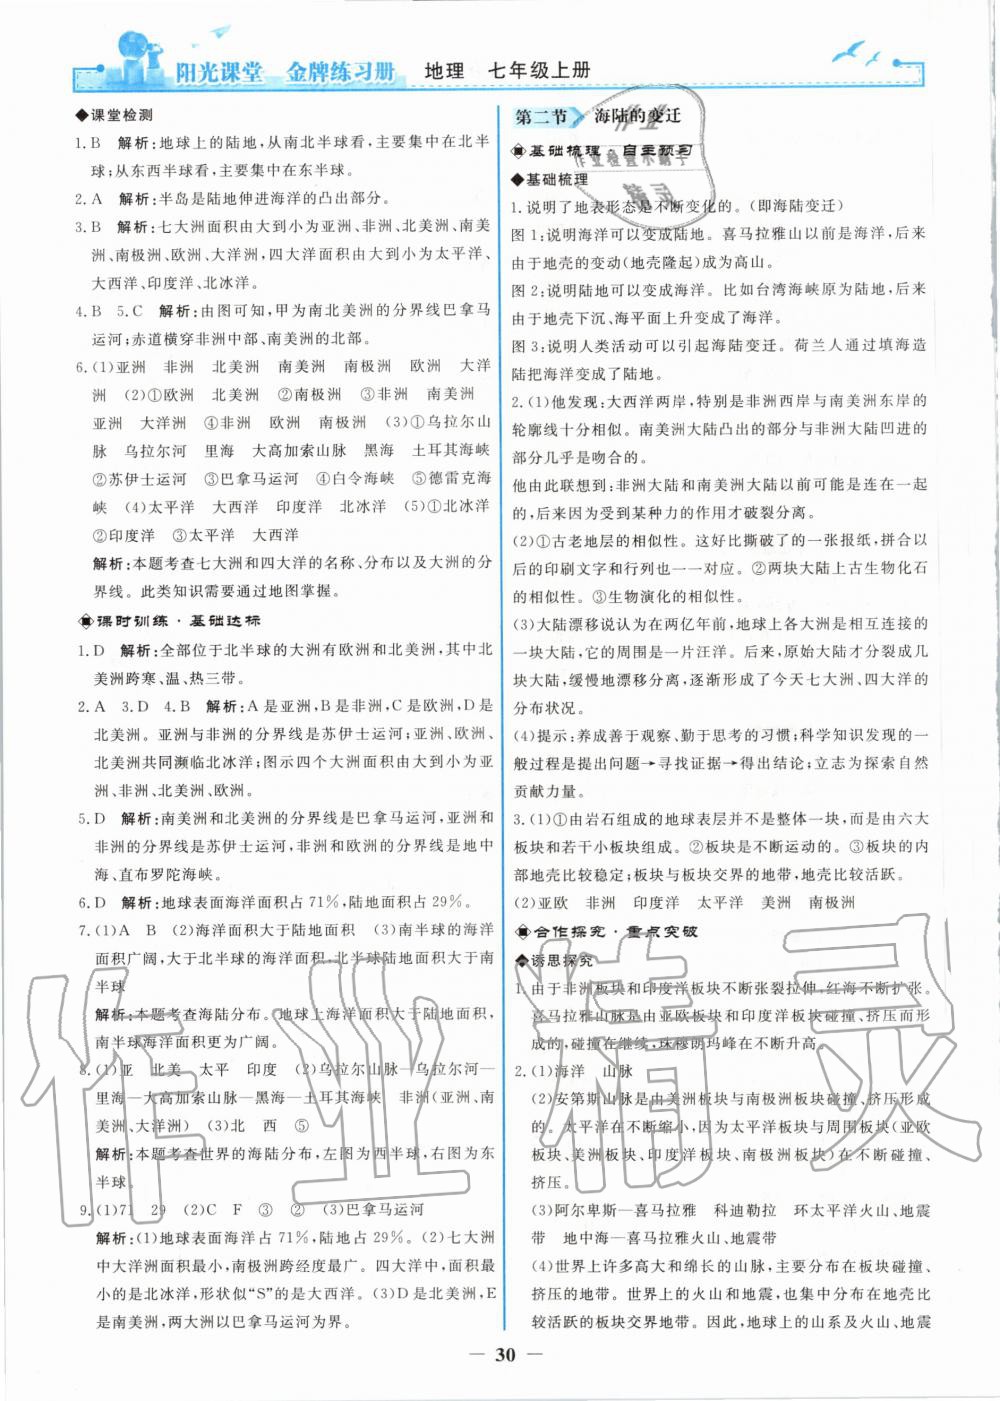 阳光课堂 金牌练习册 地理 七年级上册
◆课堂检测
1.B 解析:地球上的陆地,从南北半球看,主要集中在北半
球;从东西半球看,主要集中在东半球。
2.A 解析:半岛是陆地伸进海洋的凸出部分。
3.B 解析:七大洲面积由大到小为亚洲、非洲、北美洲、南美
洲、南极洲、欧洲、大洋洲,四大洋面积由大到小为太平洋、
大西洋、印度洋、北冰洋。
4.B 5.C 解析:由图可知,甲为南北美洲的分界线巴拿马
运河;赤道横穿非洲中部、南美洲的北部。
6.(1)亚洲 非洲 北美洲 南美洲 南极洲 欧洲 大洋
洲 (2)①欧洲 北美洲 ②南极洲 ③非洲 南美洲
亚洲 大洋洲 ④非洲 欧洲 南极洲 (3)①乌拉尔山
脉 乌拉尔河 里海 大高加索山脉 黑海 土耳其海峡
②苏伊士运河 ③巴拿马运河 ④白令海峡 ⑤德雷克海
峡 (4)太平洋 大西洋 印度洋 北冰洋 (5)①北冰洋
②印度洋 ③太平洋 大西洋
解析:本题考查七大洲和四大洋的名称、分布以及大洲的分
界线。此类知识需要通过地图掌握。
◈课时训练·基础达标
1.D 解析:全部位于北半球的大洲有欧洲和北美洲,其中北
美洲跨寒、温、热三带。
2.A 3.D 4.B 解析:A是亚洲,B是非洲,C是欧洲,D是
北美洲。亚洲与非洲的分界线是苏伊士运河;亚洲、欧洲、
北美洲共同濒临北冰洋;图示四个大洲面积由大到小为亚
洲、非洲、北美洲、欧洲。
5.D 解析:南美洲和北美洲的分界线是巴拿马运河,亚洲和
非洲的分界线是苏伊士运河,非洲和欧洲的分界线是地中
海、直布罗陀海峡。
6.D 解析:地球表面海洋面积占71%,陆地面积占29%。
7.(1)A B (2)海洋面积大于陆地面积 (3)南半球的海洋
面积广阔,大于北半球的海洋面积,北半球陆地面积大于南
半球
解析:本题考查海陆分布。地球上海洋面积大于陆地面积,
南半球海洋面积更为广阔。
8.(1)亚 北美 太平 印度 (2)乌拉尔山脉—乌拉尔河—
里海—大高加索山脉—黑海—土耳其海峡 非洲(亚洲、南
美洲、大洋洲) (3)北 西 ⑤
解析:本题考查世界的海陆分布,左图为西半球,右图为东
半球。
9.(1)71 29 (2)C F ③ ② (3)巴拿马运河
解析:(1)地球表面海洋占71%,陆地占29%。(2)七大洲
中大洋洲面积最小,南极洲跨经度最广。四大洋中,面积最
小的是北冰洋,形状似“S”的是大西洋。(3)D是北美洲,E
是南美洲,两大洲以巴拿马运河为界。
第二节 海陆的变迁
◈基础梳理·自主预习
◆基础梳理
1.说明了地表形态是不断变化的。(即海陆变迁)
图1:说明海洋可以变成陆地。喜马拉雅山以前是海洋,后来
由于地壳的变动(地壳隆起)成为高山。
图2:说明陆地可以变成海洋。比如台湾海峡原为陆地,后来
由于地壳下沉、海平面上升变成了海洋。
图3:说明人类活动可以引起海陆变迁。荷兰人通过填海造
陆把海洋变成了陆地。
2.(1)他发现:大西洋两岸,特别是非洲西岸与南美洲东岸的
轮廓线十分相似。南美洲大陆凸出的部分与非洲大陆凹进的
部分几乎是吻合的。
他由此联想到:非洲大陆和南美洲大陆以前可能是连在一起
的,后来因为受到某种力的作用才破裂分离。
(2)①古老地层的相似性。这好比撕破了的一张报纸,拼合以
后的印刷文字和行列也一一对应。②两块大陆上古生物化石
的相似性。③生物演化的相似性。
(3)大陆漂移说认为在两亿年前,地球上各大洲是相互连接的
一块大陆,它的周围是一片汪洋。后来,原始大陆才分裂成几
块大陆,缓慢地漂移分离,逐渐形成了今天七大洲、四大洋的
分布状况。
(4)提示:养成善于观察、勤于思考的习惯;科学知识发现的一
般过程是提出问题→寻找证据→得出结论;立志为探索自然
贡献力量。
3.(1)①由岩石组成的地球表层并不是整体一块,而是由六大
板块和若干小板块组成。②板块是不断运动的。③板块的内
部地壳比较稳定;板块与板块交界的地带,地壳比较活跃。
(2)亚欧 非洲 印度洋 太平洋 美洲 南极洲
◈合作探究·重点突破
◆诱思探究
1.由于非洲板块和印度洋板块不断张裂拉伸,红海不断扩张。
喜马拉雅山脉是由亚欧板块和印度洋板块碰撞、挤压而形
成的,碰撞在继续,珠穆朗玛峰在不断升高。
2.(1)海洋 山脉
(2)安第斯山脉是由美洲板块与南极洲板块碰撞、挤压形成
的。太平洋在不断缩小,因为太平洋板块与周围板块(亚欧
板块、美洲板块、印度洋板块、南极洲板块)在不断碰撞、
挤压。
(3)阿尔卑斯—喜马拉雅 科迪勒拉 环太平洋火山、地震
带 地中海—喜马拉雅火山、地震带
(4)世界上许多高大和绵长的山脉,主要分布在板块碰撞、
挤压的地带。世界上的火山和地震,也集中分布在地壳比
较活跃的板块交界地带。因此,地球上的山系及火山、地震
— 30 —
作业精灵